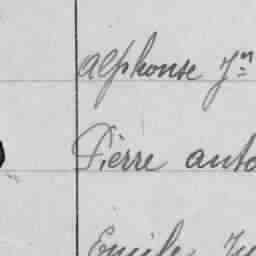 Alphonse Jn
Pièrre anto
Emile Ju